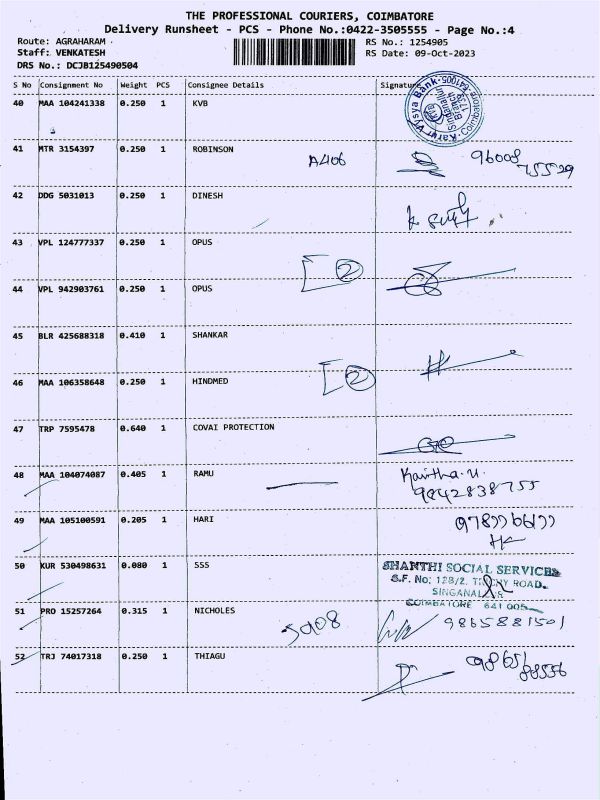 THE PROFESSIONAL COURIERS, COIMBATORE
Delivery Runsheet - PCS - Phone No.:0422-3505555 - Page No.:4
Route: AGRAHARAM
RS No.: 1254905
Staff: VENKATESH
RS Date: 09-Oct-2023
DRS No.: DCJB125490504
S No Consignment No Weight PCS Consignee Details Signature
40 MAA 104241338 0.250 1 KVB
41 MTR 3154397 0.250 1 ROBINSON A406 96008
75529
42 DDG 5031013 0.250 1 DINESH
43 VPL 124777337 0.250 1 OPUS
2
44 VPL 942903761 0.250 1 OPUS
45 BLR 425688318 0.410 1 SHANKAR
2
46 MAA 106358648 0.250 1 HINDMED
47 TRP 7595478 0.640 1 COVAI PROTECTION
48 MAA 104074087 0.405 1 RAMU Kavitha.U.
9842838755
49 MAA 105100591 0.205 1 HARI
50 KUR 530498631 0.080 1 SSS SHANTHI SOCIAL SERVICES
S.F. No: 128/2. TRICHY ROAD.
SINGANALLUR
COIMBATORE 641 005
51 PRO 15257264 0.315 1 NICHOLES 9865881501
52 TRJ 74017318 0.250 1 THIAGU 98651
88556